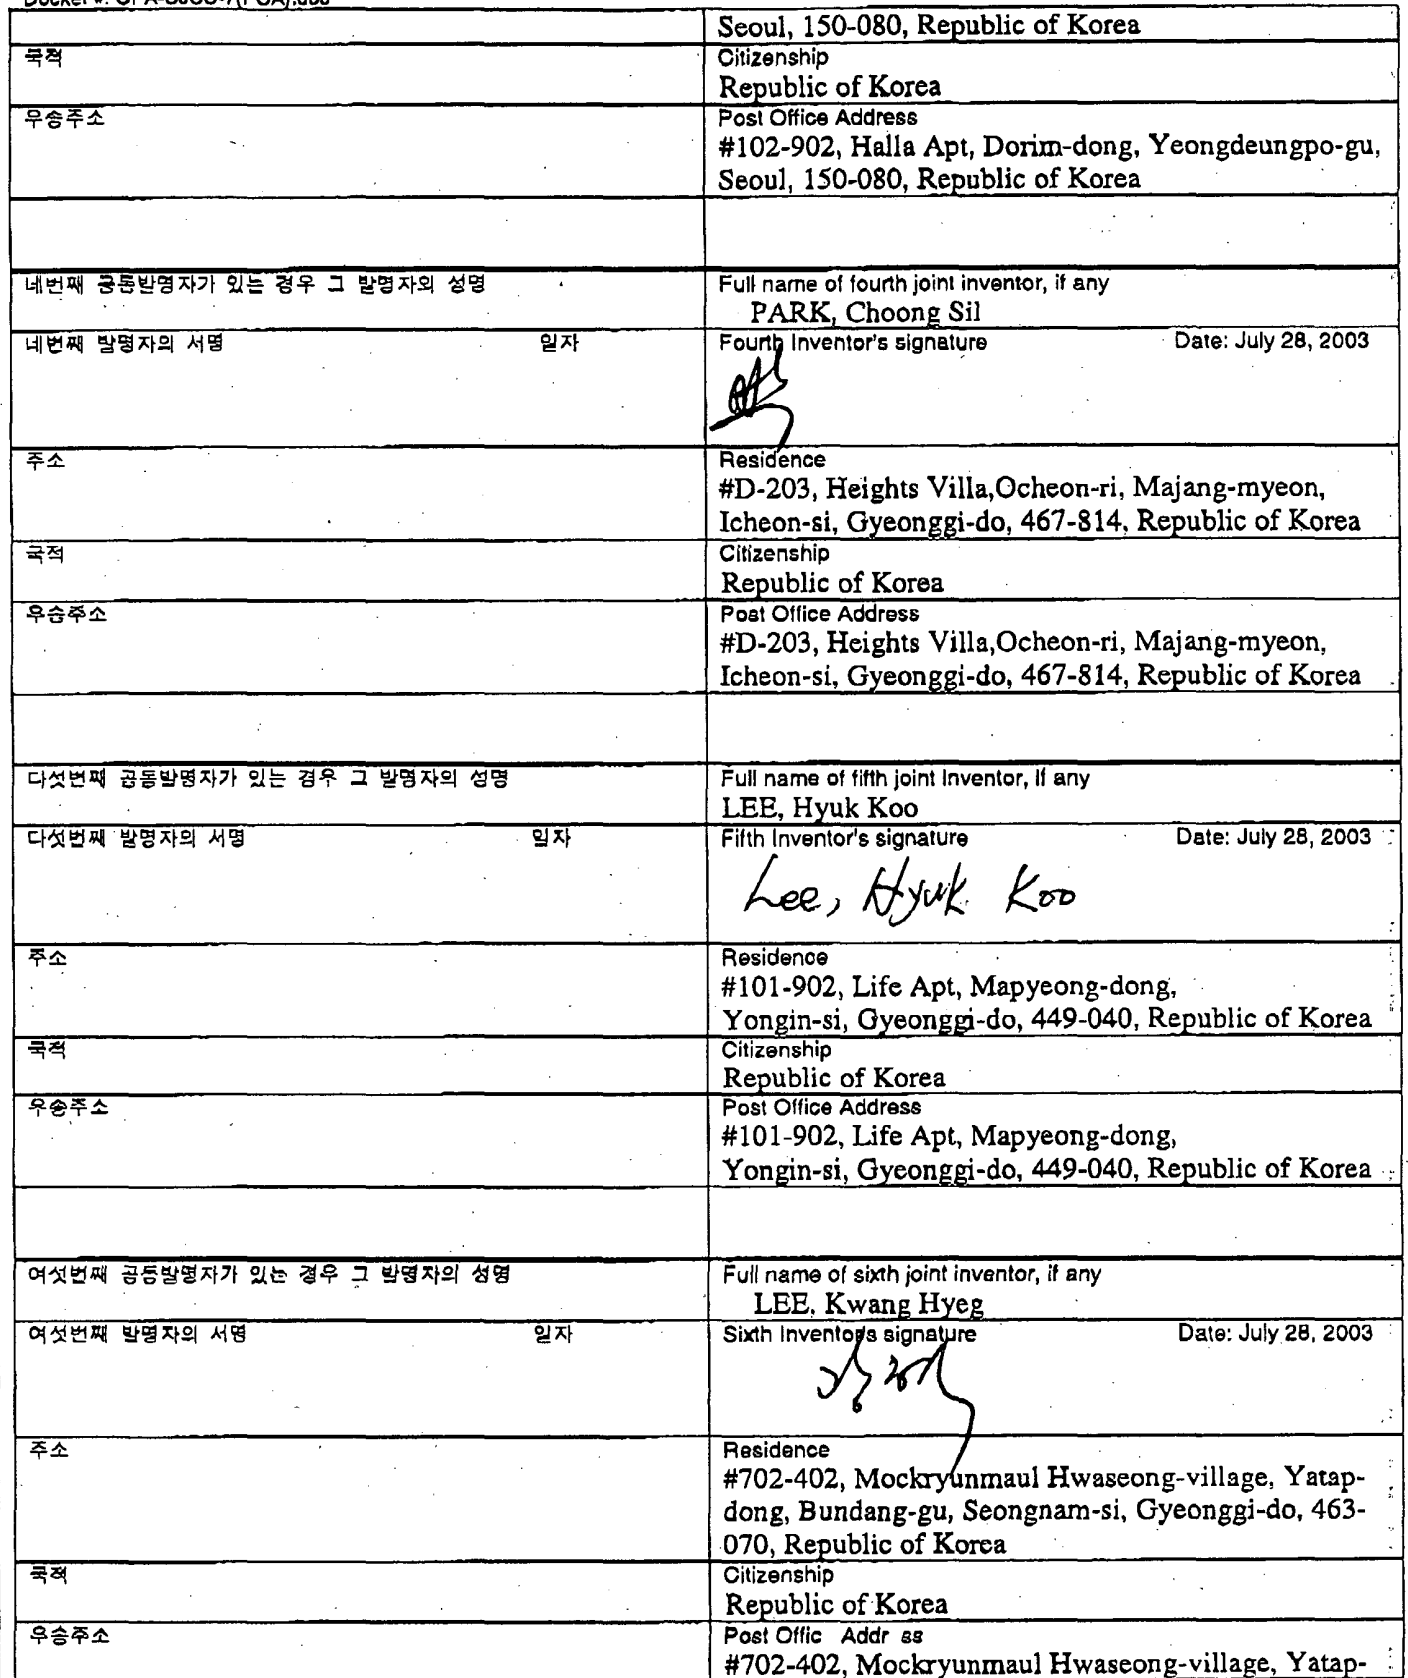 Seoul, 150-080, Republic of Korea
국적
Citizenship
Republic of Korea
우송주소
Post Office Address
#102-902, Halla Apt, Dorim-dong, Yeongdeungpo-gu,
Seoul, 150-080, Republic of Korea
네번째 공동발명자가 있는 경우 그 발명자의 성명
Full name of fourth joint inventor, if any
PARK, Choong Sil
네번째 발명자의 서명 일자
Fourth Inventor's signature Date: July 28, 2003
주소
Residence
#D-203, Heights Villa,Ocheon-ri, Majang-myeon,
Icheon-si, Gyeonggi-do, 467-814, Republic of Korea
국적
Citizenship
Republic of Korea
우송주소
Post Office Address
#D-203, Heights Villa,Ocheon-ri, Majang-myeon,
Icheon-si, Gyeonggi-do, 467-814, Republic of Korea
다섯번째 공동발명자가 있는 경우 그 발명자의 성명
Full name of fifth joint Inventor, if any
LEE, Hyuk Koo
다섯번째 발명자의 서명 일자
Fifth Inventor's signature Date: July 28, 2003
Lee, Hyuk Koo
주소
Residence
#101-902, Life Apt, Mapyeong-dong,
Yongin-si, Gyeonggi-do, 449-040, Republic of Korea
국적
Citizenship
Republic of Korea
우송주소
Post Office Address
#101-902, Life Apt, Mapyeong-dong,
Yongin-si, Gyeonggi-do, 449-040, Republic of Korea
여섯번째 공동발명자가 있는 경우 그 발명자의 성명
Full name of sixth joint inventor, if any
LEE, Kwang Hyeg
여섯번째 발명자의 서명 일자
Sixth Inventor's signature Date: July 28, 2003
주소
Residence
#702-402, Mockryunmaul Hwaseong-village, Yatap-
dong, Bundang-gu, Seongnam-si, Gyeonggi-do, 463-
070, Republic of Korea
국적
Citizenship
Republic of Korea
우송주소
Post Offic Addr ss
#702-402, Mockryunmaul Hwaseong-village, Yatap-